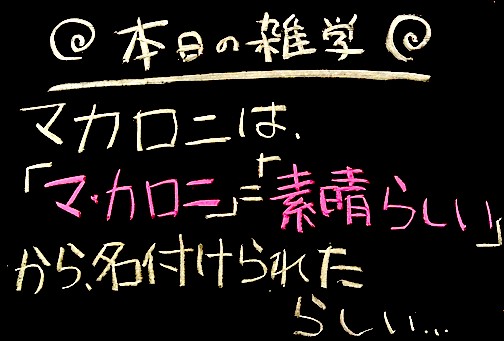 本日の雑学
マカロニは、
「マ・カロニ」=「素晴らしい」
から、名付けられた
らしい...